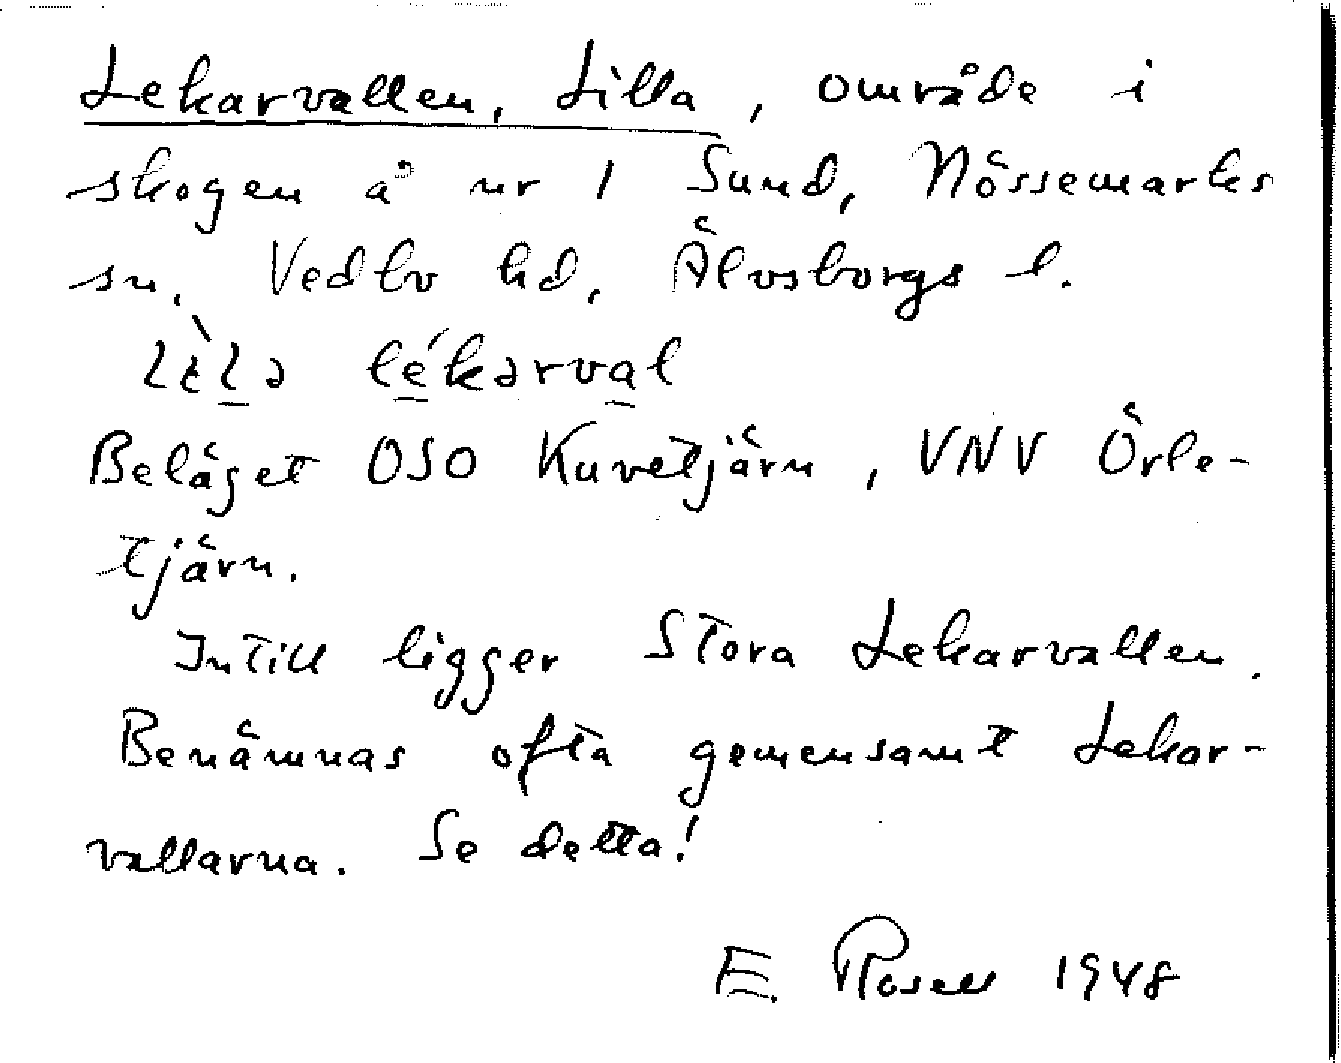 Lekarvallen, Lilla, område i
skogen å nr 1 Sund, Nössemarks
sn, Vedbo hd, Älvsborgs l.
lèla lékarval
Beläget OSO Kuvetjärn, VNV Örle-
tjärn.
Intill ligger Stora Lekarvallen.
Benämnas ofta gemensamt Lekar-
vallarna. Se detta!
E. Rosell 1948